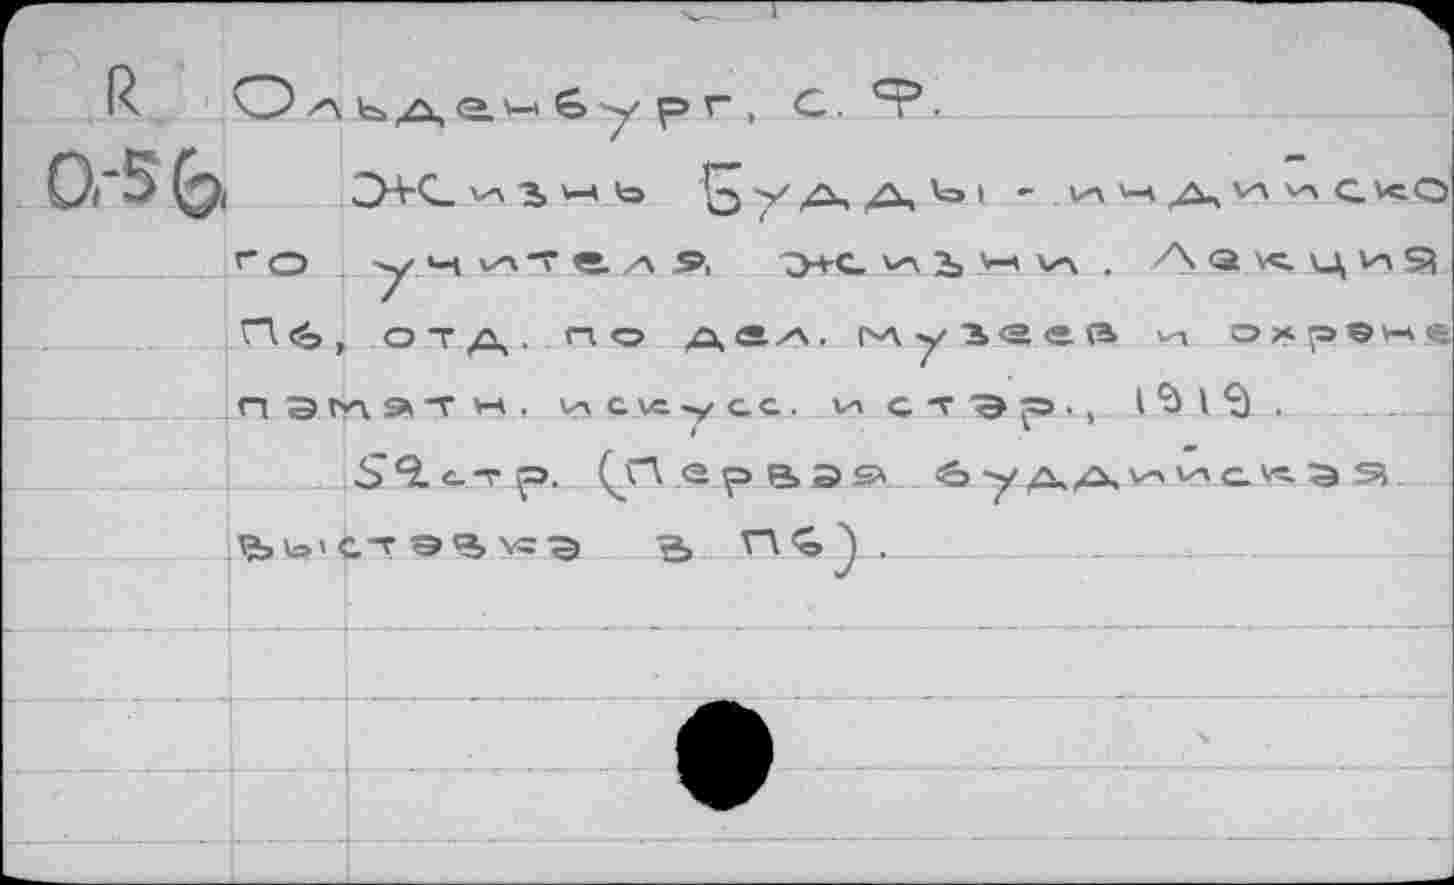 R Ольденбург, С. Ф.
О-56 Жизнь Будды - индийско
го учителя жизни. Лекция
Пб, отд. по дел. музеев и охране
памятн. искусс. и стар., 1919.
52 стр. (Первая буддийская
выставка в Пб).